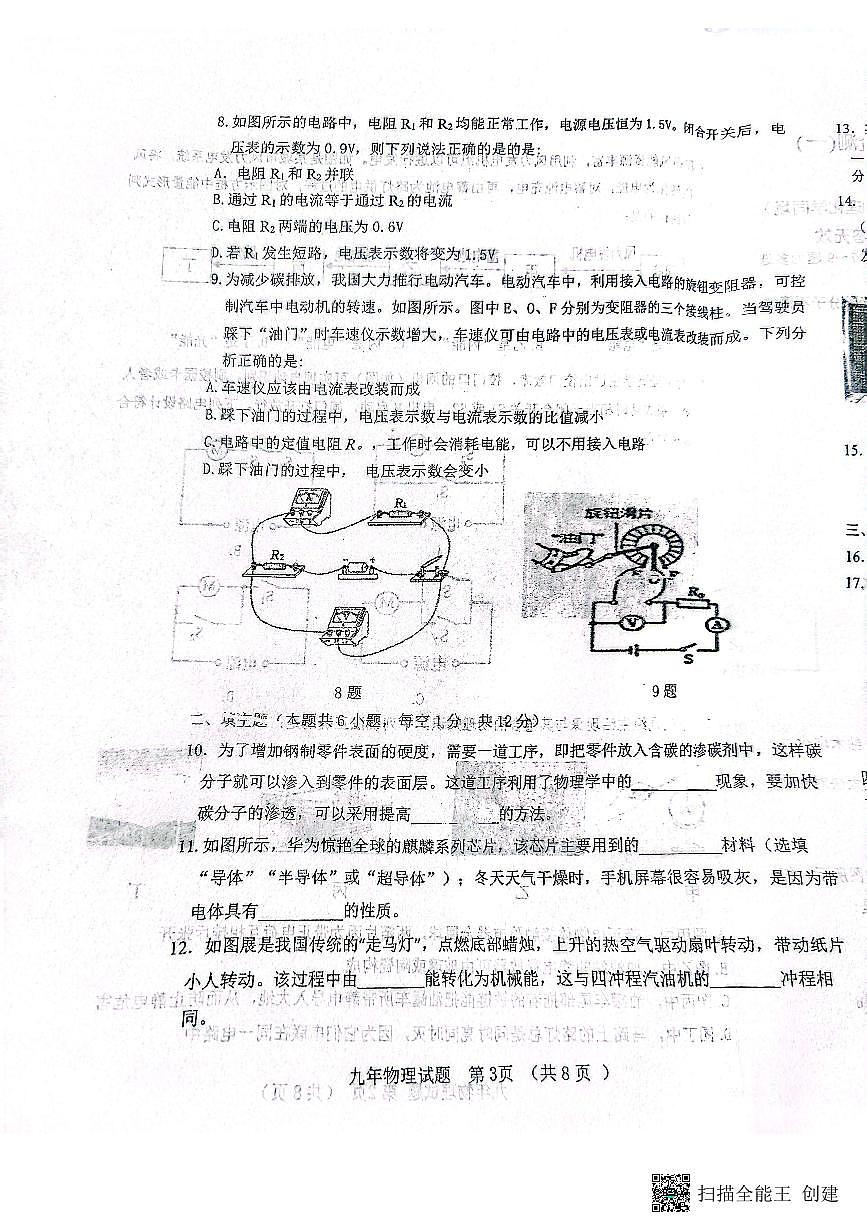 8.如图所示的电路中，电阻 R₁和 R₂均能正常工作，电源电压恒为 1.5V。闭合开关后，电
压表的示数为 0.9V，则下列说法正确的是的是：
A．电阻 R₁和 R₂并联
B.通过 R₁的电流等于通过 R₂的电流
C.电阻 R₂两端的电压为 0.6V
D.若 R₁发生短路，电压表示数将变为1.5V
9.为减少碳排放，我国大力推行电动汽车。电动汽车中，利用接入电路的旋钮变阻器，可控
制汽车中电动机的转速。如图所示。图中 E、O、F 分别为变阻器的三个接线柱。当驾驶员
踩下“油门”时车速仪示数增大，车速仪可由电路中的电压表或电流表改装而成。下列分
析正确的是：
A.车速仪应该由电流表改装而成
B.踩下油门的过程中，电压表示数与电流表示数的比值减小
C.电路中的定值电阻 R。，工作时会消耗电能，可以不用接入电路
D.踩下油门的过程中， 电压表示数会变小
R₁
A
R₂
V
旋钮滑片
油门
E O F
R₀
V
A
S
8 题
9 题
二、填空题（本题共 6 小题，每空 1 分，共 12 分）
10．为了增加钢制零件表面的硬度，需要一道工序，即把零件放入含碳的渗碳剂中，这样碳
分子就可以渗入到零件的表面层。这道工序利用了物理学中的________现象，要加快
碳分子的渗透，可以采用提高________的方法。
11.如图所示，华为惊艳全球的麒麟系列芯片，该芯片主要用到的________材料（选填
“导体”“半导体”或“超导体”）；冬天天气干燥时，手机屏幕很容易吸灰，是因为带
电体具有________的性质。
12．如图展是我国传统的“走马灯”，点燃底部蜡烛，上升的热空气驱动扇叶转动，带动纸片
小人转动。该过程中由________能转化为机械能，这与四冲程汽油机的________冲程相
同。
九年物理试题 第 3页 （共 8 页 ）
13.
分
14.
15.
三、
16.
17.
扫描全能王 创建